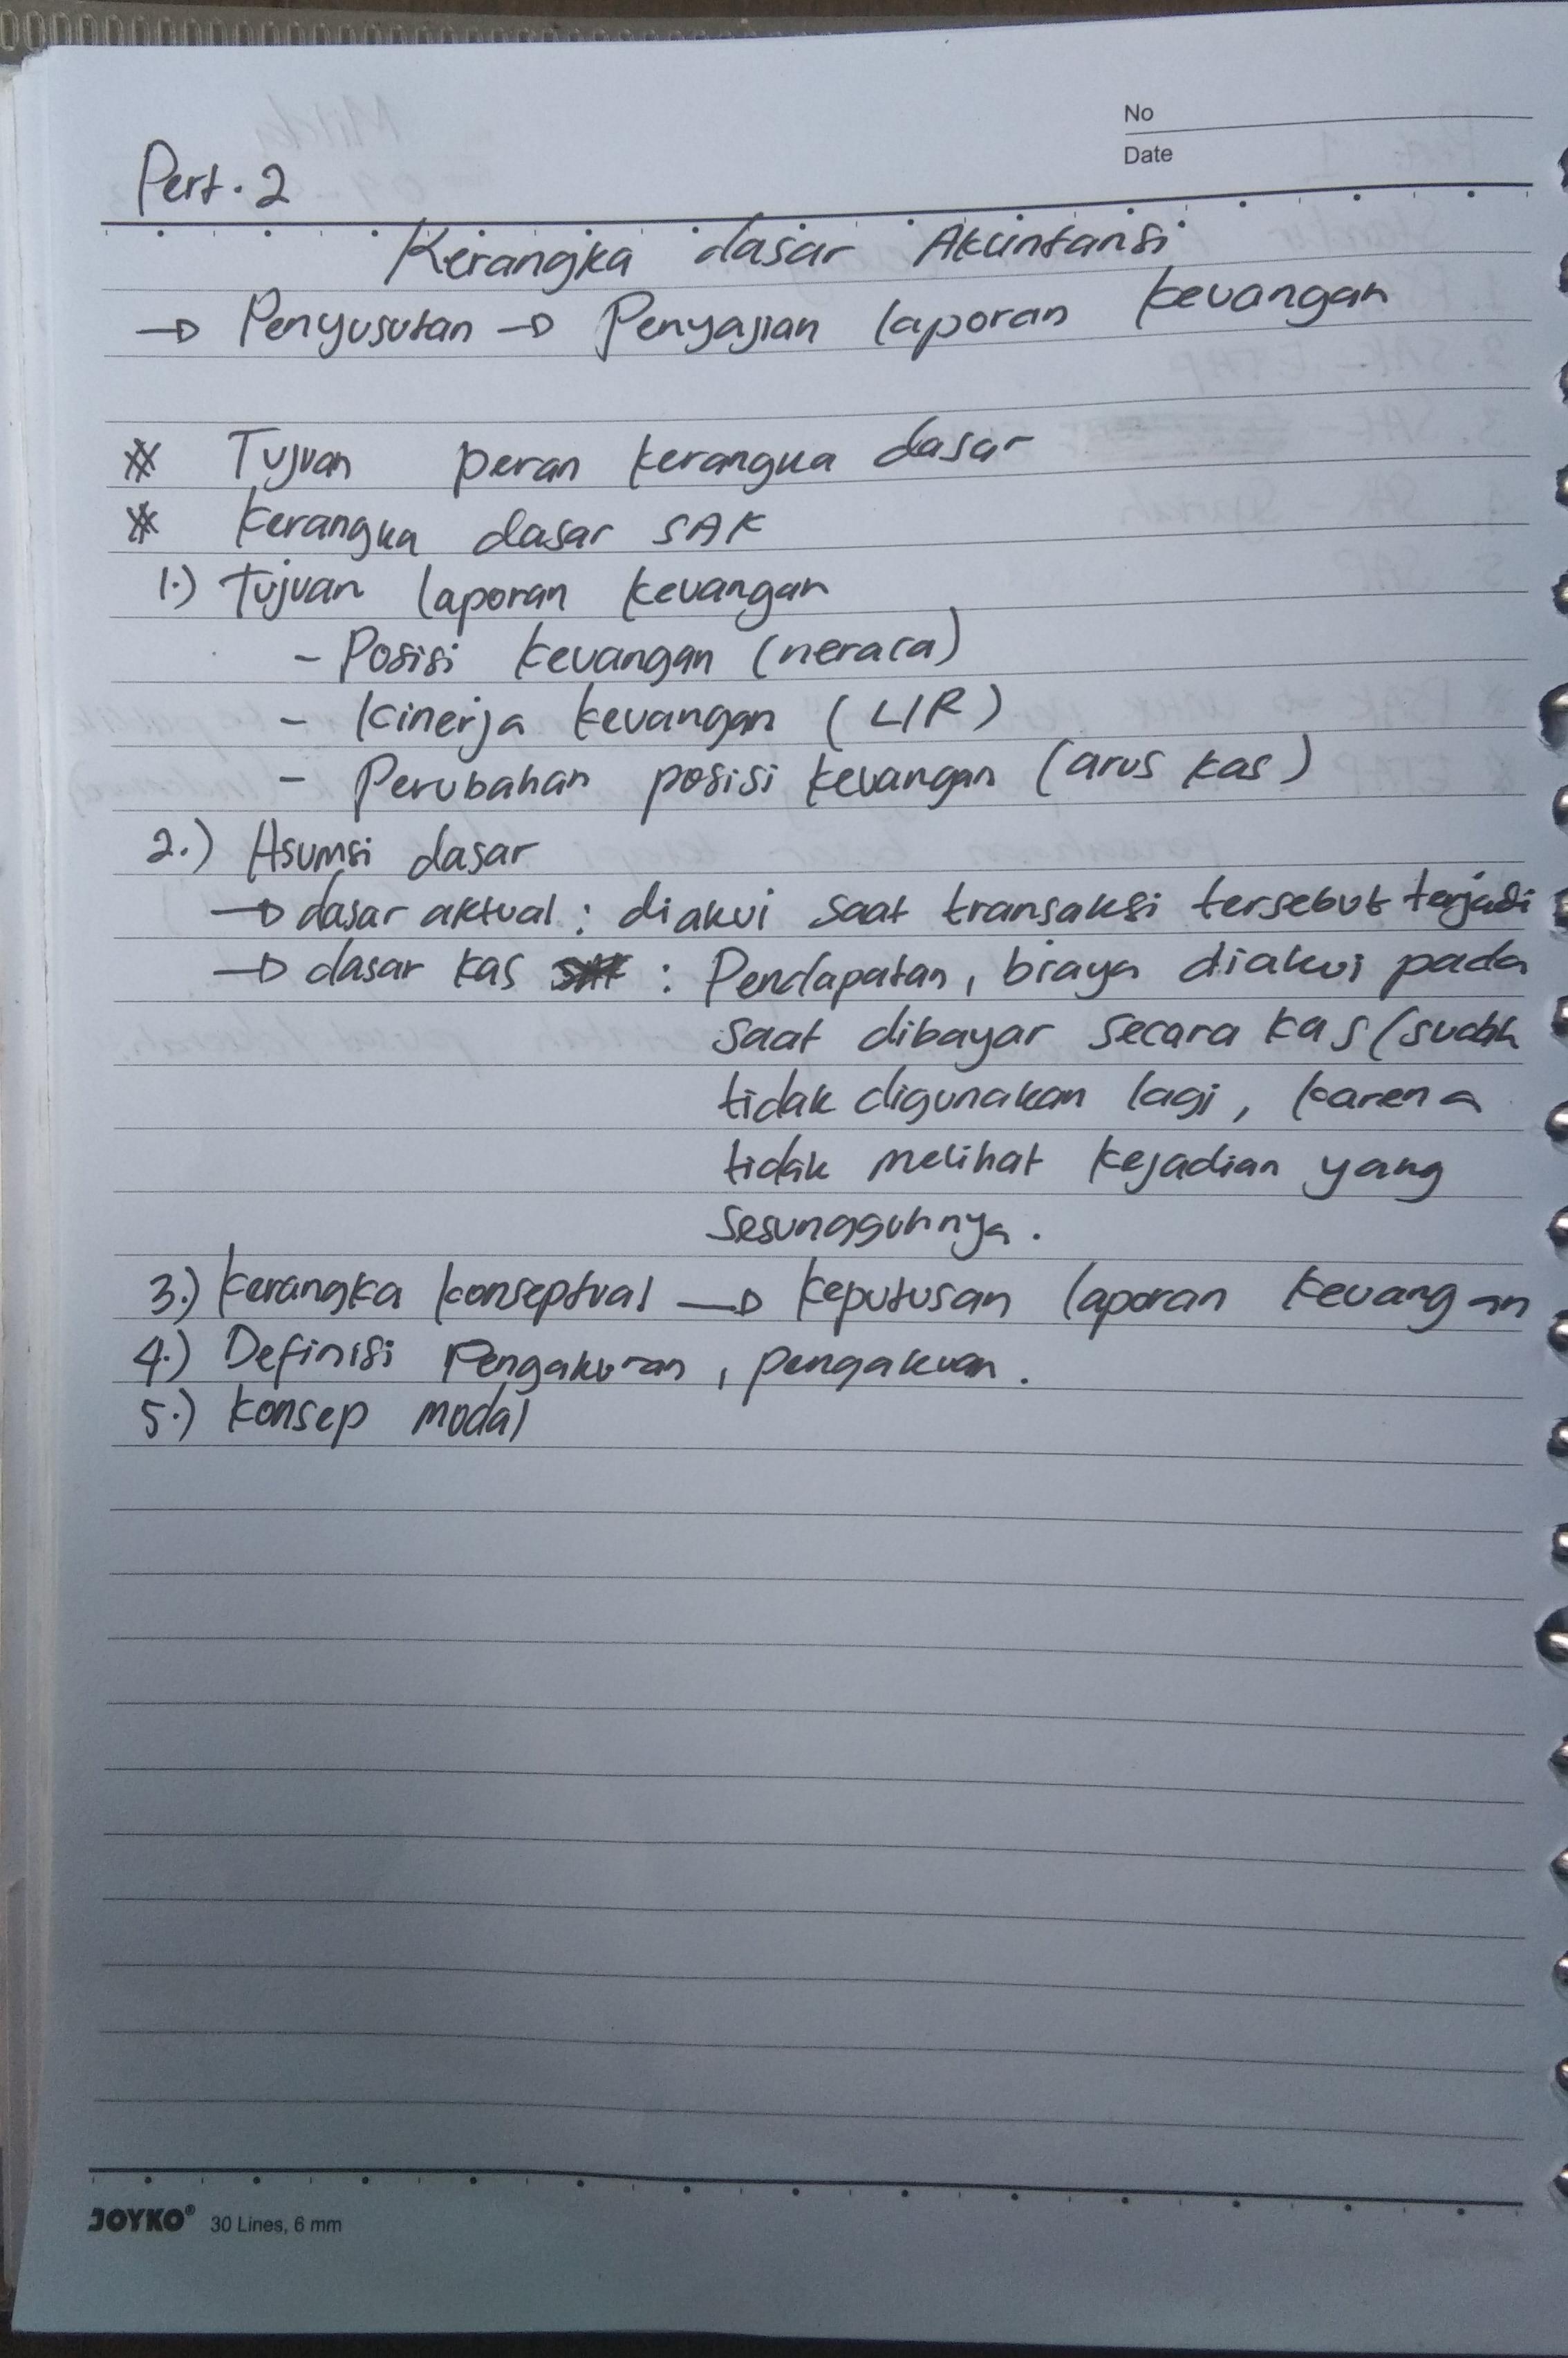 No
Date
Pert. 2
Kerangka dasar Akuntansi
→ Penyusutan → Penyajian laporan keuangan
* Tujuan peran kerangka dasar
* kerangka dasar SAK
1.) Tujuan laporan keuangan
- Posisi keuangan (neraca)
- Kinerja keuangan (L/R)
- Perubahan posisi keuangan (arus kas)
2.) Asumsi dasar
→ dasar aktual : diakui saat transaksi tersebut terjadi
→ dasar kas : Pendapatan, biaya diakui pada
saat dibayar secara kas (sudah
tidak digunakan lagi, karena
tidak melihat kejadian yang
sesungguhnya.
3.) kerangka konseptual → keputusan laporan keuangan
4.) Definisi Pengakuran, pengakuan.
5.) konsep modal
JOYKO® 30 Lines, 6 mm